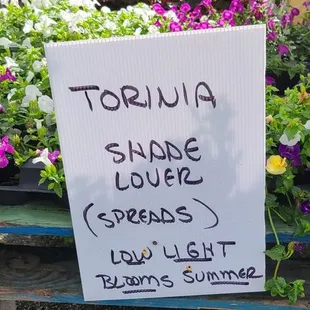 TORINIA
SHADE
LOVER
(SPREADS)
LOW LIGHT
BLOOMS SUMMER